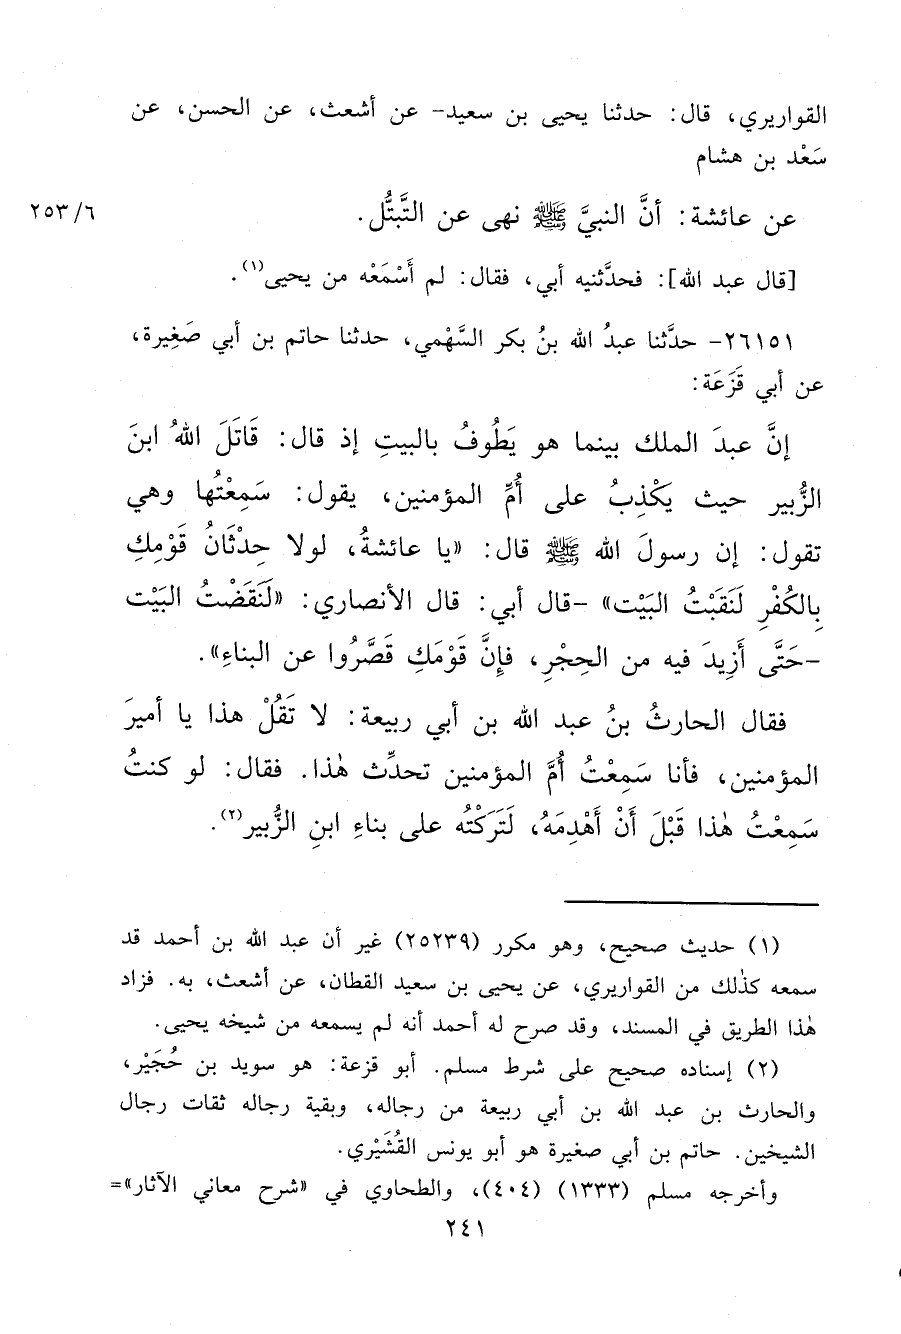 القواريري، قال: حدثنا يحيى بن سعيد- عن أشعث، عن الحسن، عن
سَعْد بن هشام
عن عائشة: أنَّ النبيَّ ﷺ نهى عن التَّبتُّل.
٢٥٣/٦
[قال عبد الله]: فحدَّثنيه أبي، فقال: لم أَسْمَعْه من يحيى(١).
٢٦١٥١- حدَّثنا عبدُ الله بنُ بكر السَّهْمي، حدثنا حاتم بن أبي صَغِيرة،
عن أبي قَزَعَة:
إنَّ عبدَ الملك بينما هو يَطُوفُ بالبيتِ إذ قال: قَاتَلَ اللهُ ابنَ
الزُّبير حيث يَكْذِبُ على أُمِّ المؤمنين، يقول: سَمِعْتُها وهي
تقول: إن رسولَ الله ﷺ قال: «يا عائشةُ، لولا حِدْثَانُ قَوْمِكِ
بِالكُفْرِ لَنَقَبْتُ البَيْت» -قال أبي: قال الأنصاري: «لَنَقَضْتُ البَيْت
-حَتَّى أَزِيدَ فيه من الحِجْرِ، فإِنَّ قَوْمَكِ قَصَّرُوا عن البناءِ».
فقال الحارثُ بنُ عبد الله بن أبي ربيعة: لا تَقُلْ هذا يا أميرَ
المؤمنين، فأنا سَمِعتُ أُمَّ المؤمنين تحدِّث هٰذا. فقال: لو كنتُ
سَمِعْتُ هٰذا قَبْلَ أَنْ أَهْدِمَهُ، لَتَرَكْتُه على بناءِ ابنِ الزُّبير(٢).
(١) حديث صحيح، وهو مكرر (٢٥٢٣٩) غير أن عبد الله بن أحمد قد
سمعه كذٰلك من القواريري، عن يحيى بن سعيد القطان، عن أشعث، به. فزاد
هٰذا الطريق في المسند، وقد صرح له أحمد أنه لم يسمعه من شيخه يحيى.
(٢) إسناده صحيح على شرط مسلم. أبو قزعة: هو سويد بن حُجَيْر،
والحارث بن عبد الله بن أبي ربيعة من رجاله، وبقية رجاله ثقات رجال
الشيخين. حاتم بن أبي صغيرة هو أبو يونس القُشَيْري.
وأخرجه مسلم (١٣٣٣) (٤٠٤)، والطحاوي في «شرح معاني الآثار»=
٢٤١